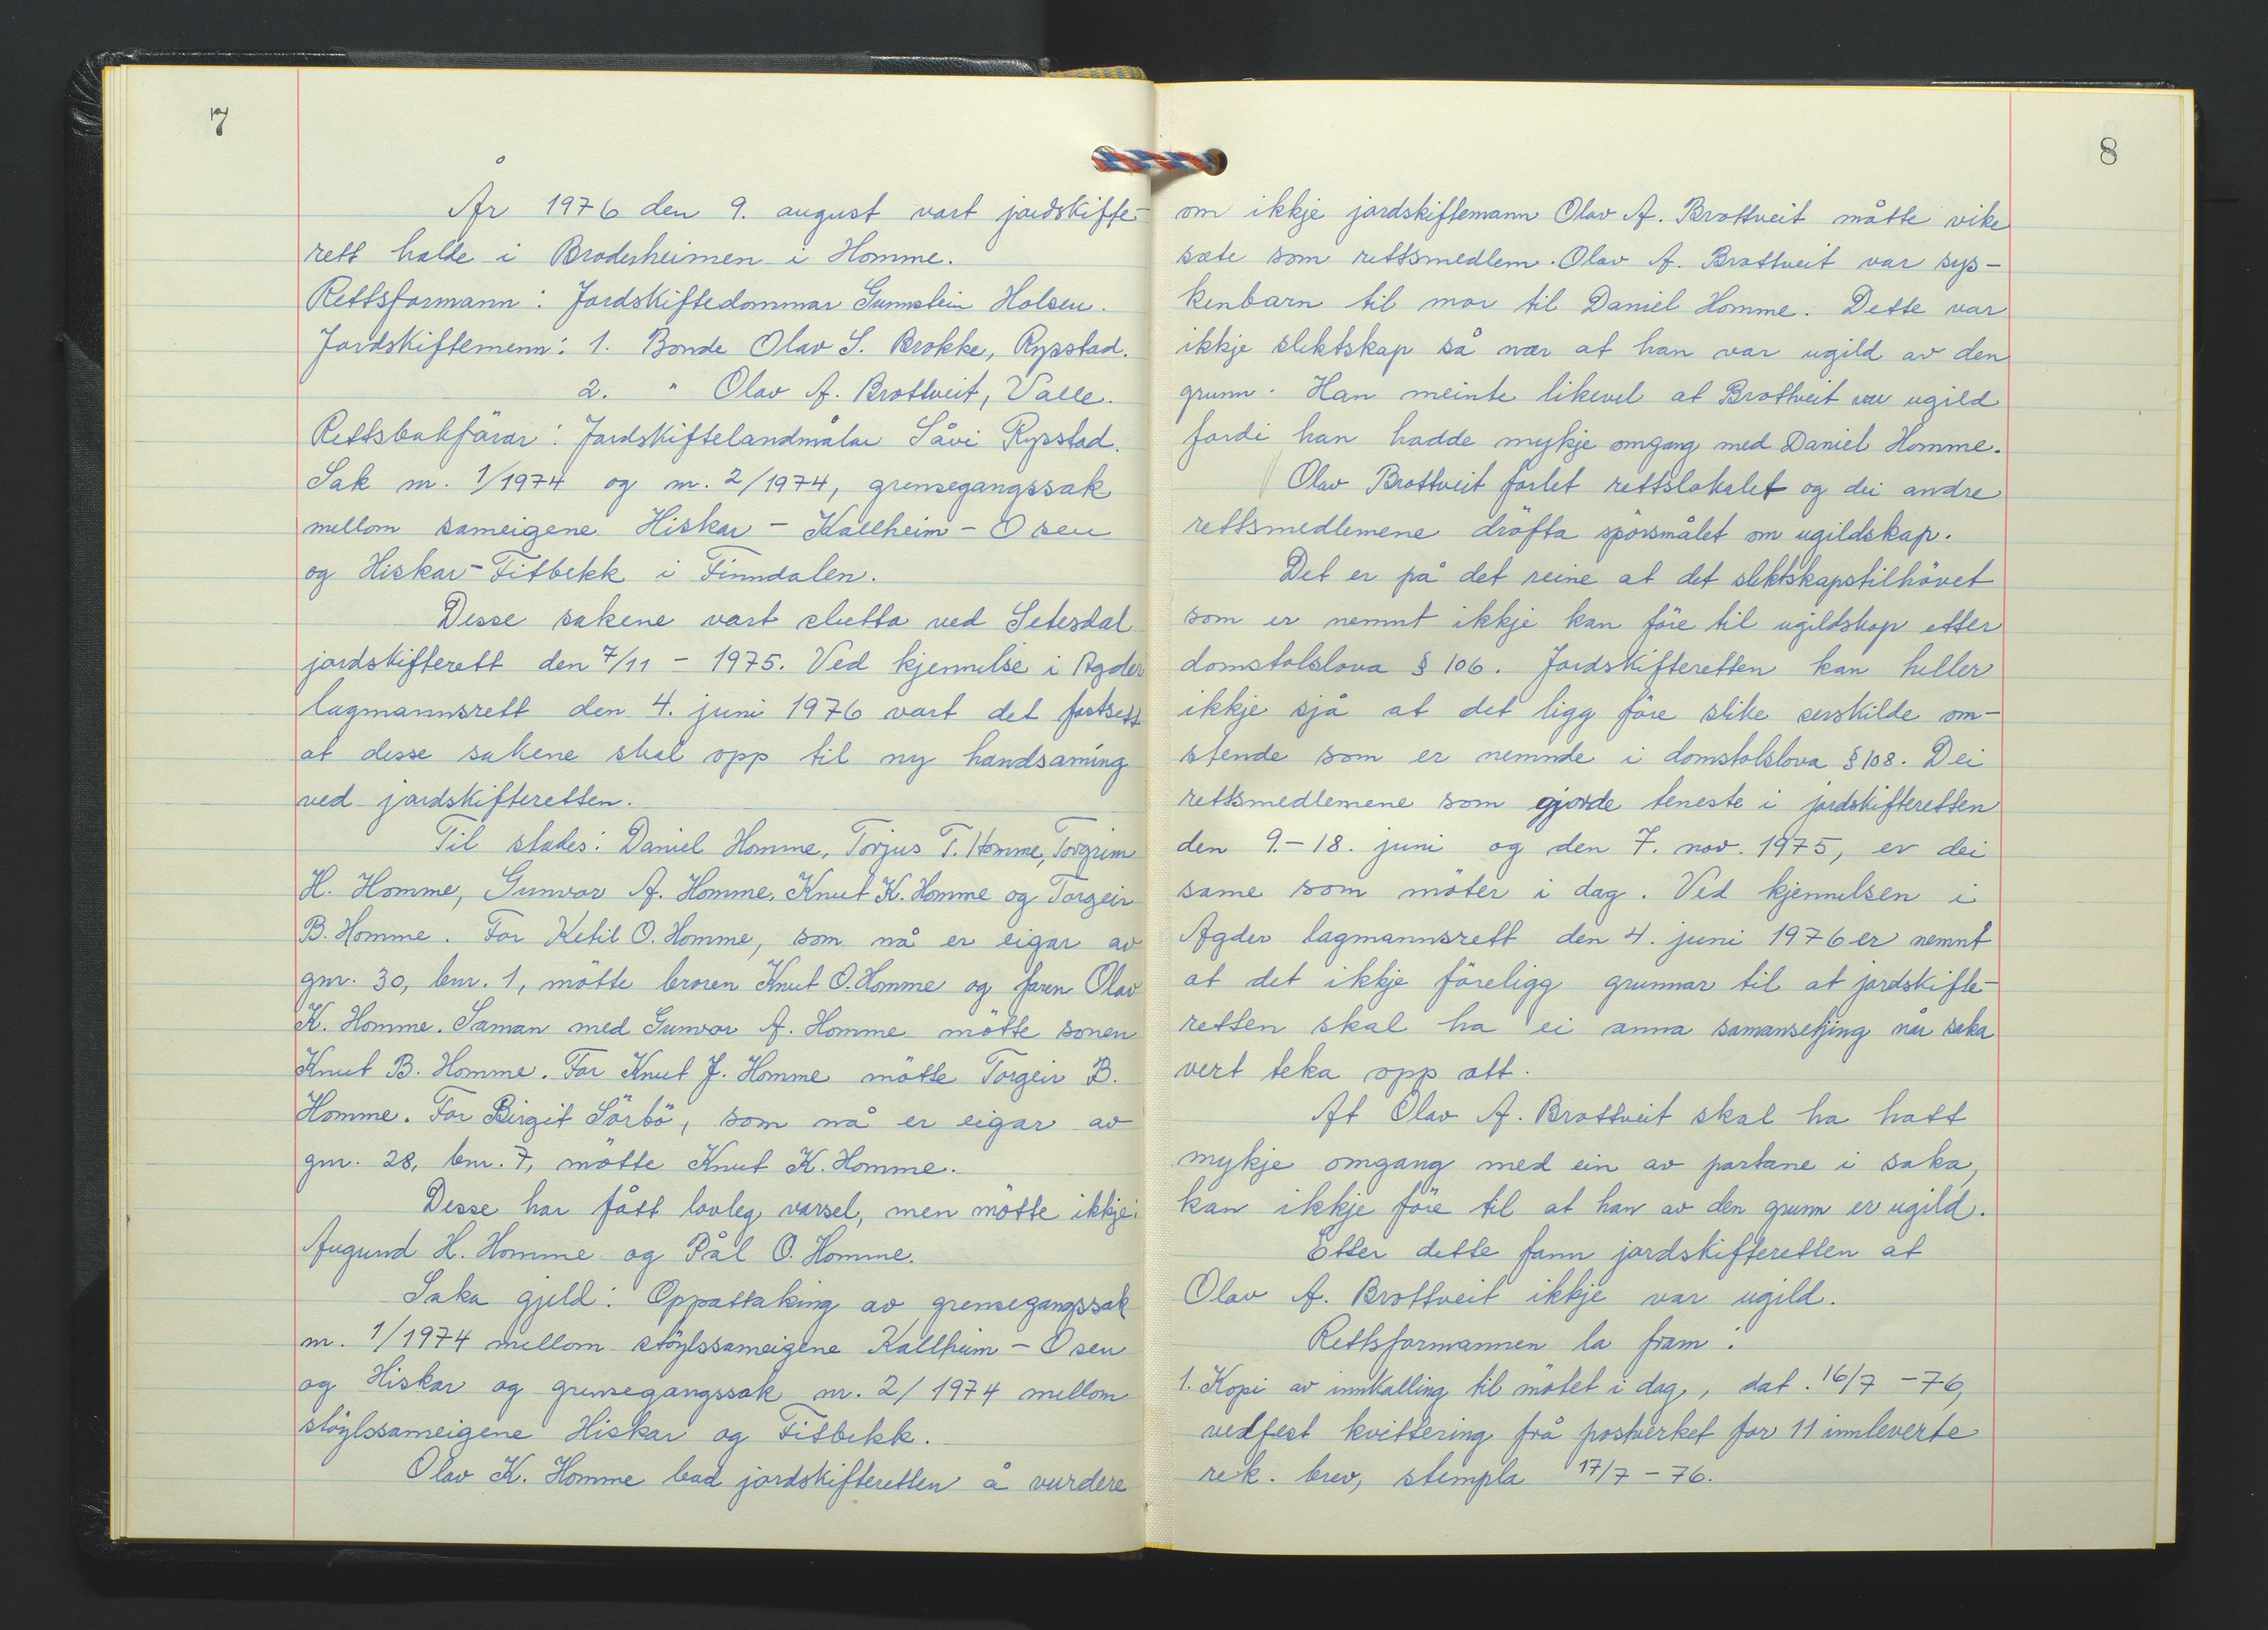 7
År 1976 den 9. august vart jordskifte-
rett halde i Brodesheimen i Homme.
Rettsformann: Jordskiftedommar Gunnstein Holsen.
Jordskiftemenn: 1. Bonde Olav S. Brokke, Rysstad.
2. " Olav A. Brottveit, Valle.
Rettsbokførar: Jordskiftelandmålar Såvi Rysstad.
Sak nr. 1/1974 og nr. 2/1974, grensegangssak
mellom sameigene Hiskar - Kallheim - Osen
og Hiskar - Fitbekk i Finndalen.
Desse sakene vart slutta ved Setesdal
jordskifterett den 7/11 - 1975. Ved kjennelse i Agder
lagmannsrett den 4. juni 1976 vart det fastsett
at desse sakene skal opp til ny handsaming
ved jordskifteretten.
Til stades: Daniel Homme, Torjus T. Homme, Torgrim
H. Homme, Gunvor A. Homme, Knut K. Homme og Torgeir
B. Homme. For Ketil O. Homme, som nå er eigar av
gnr. 30, bnr. 1, møtte broren Knut O. Homme og faren Olav
K. Homme. Saman med Gunvor A. Homme møtte sonen
Knut B. Homme. For Knut J. Homme møtte Torgeir B.
Homme. For Birgit Sörbö, som nå er eigar av
gnr. 28, bnr. 7, møtte Knut K. Homme.
Desse har fått lovleg varsel, men møtte ikkje:
Augund H. Homme og Pål O. Homme.
Saka gjeld: Oppattaking av grensegangssak
nr. 1/1974 mellom stöylssameigene Kallheim - Osen
og Hiskar og grensegangssak nr. 2/1974 mellom
stöylssameigene Hiskar og Fitbekk.
Olav K. Homme bad jordskifteretten å vurdere
8
om ikkje jordskiftemann Olav A. Brottveit måtte vike
sæte som rettsmedlem. Olav A. Brottveit var sys-
kenbarn til mor til Daniel Homme. Dette var
ikkje slektskap så nær at han var ugild av den
grunn. Han meinte likevel at Brottveit var ugild
fordi han hadde mykje omgang med Daniel Homme.
Olav Brottveit forlet rettslokalet og dei andre
rettsmedlemene dröfta spörsmålet om ugildskap.
Det er på det reine at det slektskapstilhövet
som er nemnt ikkje kan före til ugildskap etter
domstolslova § 106. Jordskifteretten kan heller
ikkje sjå at det ligg före slike serskilde om-
stende som er nemnde i domstolslova § 108. Dei
rettsmedlemene som gjorde teneste i jordskifteretten
den 9.-18. juni og den 7. nov. 1975, er dei
same som möter i dag. Ved kjennelsen i
Agder lagmannsrett den 4. juni 1976 er nemnt
at det ikkje föreligg grunnar til at jordskifte-
retten skal ha ei anna samansetjing når saka
vert teka opp att.
At Olav A. Brottveit skal ha hatt
mykje omgang med ein av partane i saka,
kan ikkje före til at han av den grunn er ugild.
Etter dette fann jordskifteretten at
Olav A. Brottveit ikkje var ugild.
Rettsformannen la fram:
1. Kopi av innkalling til mötet i dag, dat. 16/7 - 76,
vedfest kvittering frå postverket for 11 innleverte
rek. brev, stempla 17/7 - 76.